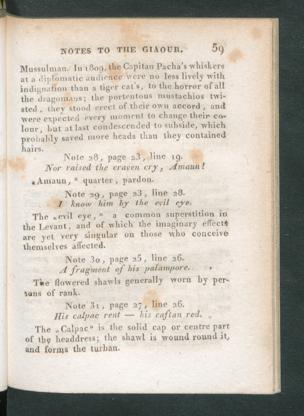 NOTES TO THE GIAOUR. 59
Mussulman. In 1809, the Capitan Pacha's whiskers
at a diplomatic audience were no less lively with
indignation than a tiger cat's, to the horror of all
the dragomans; the portentous mustachios twi-
sted, they stood erect of their own accord, and
were expected every moment to change their co-
lour, but at last condescended to subside, which
probably saved more heads than they contained
hairs.
Note 28, page 23, line 19.
Nor raised the craven cry, Amaun!
„Amaun,“ quarter, pardon.
Note 29, page 23, line 28.
I know him by the evil eye.
The „evil eye,“ a common superstition in
the Levant, and of which the imaginary effects
are yet very singular on those who conceive
themselves affected.
Note 30, page 25, line 26.
A fragment of his palampore.
The flowered shawls generally worn by per-
sons of rank.
Note 31, page 27, line 26.
His calpac rent — his caftan red.
The „Calpac“ is the solid cap or centre part
of the headdress; the shawl is wound round it,
and forms the turban.